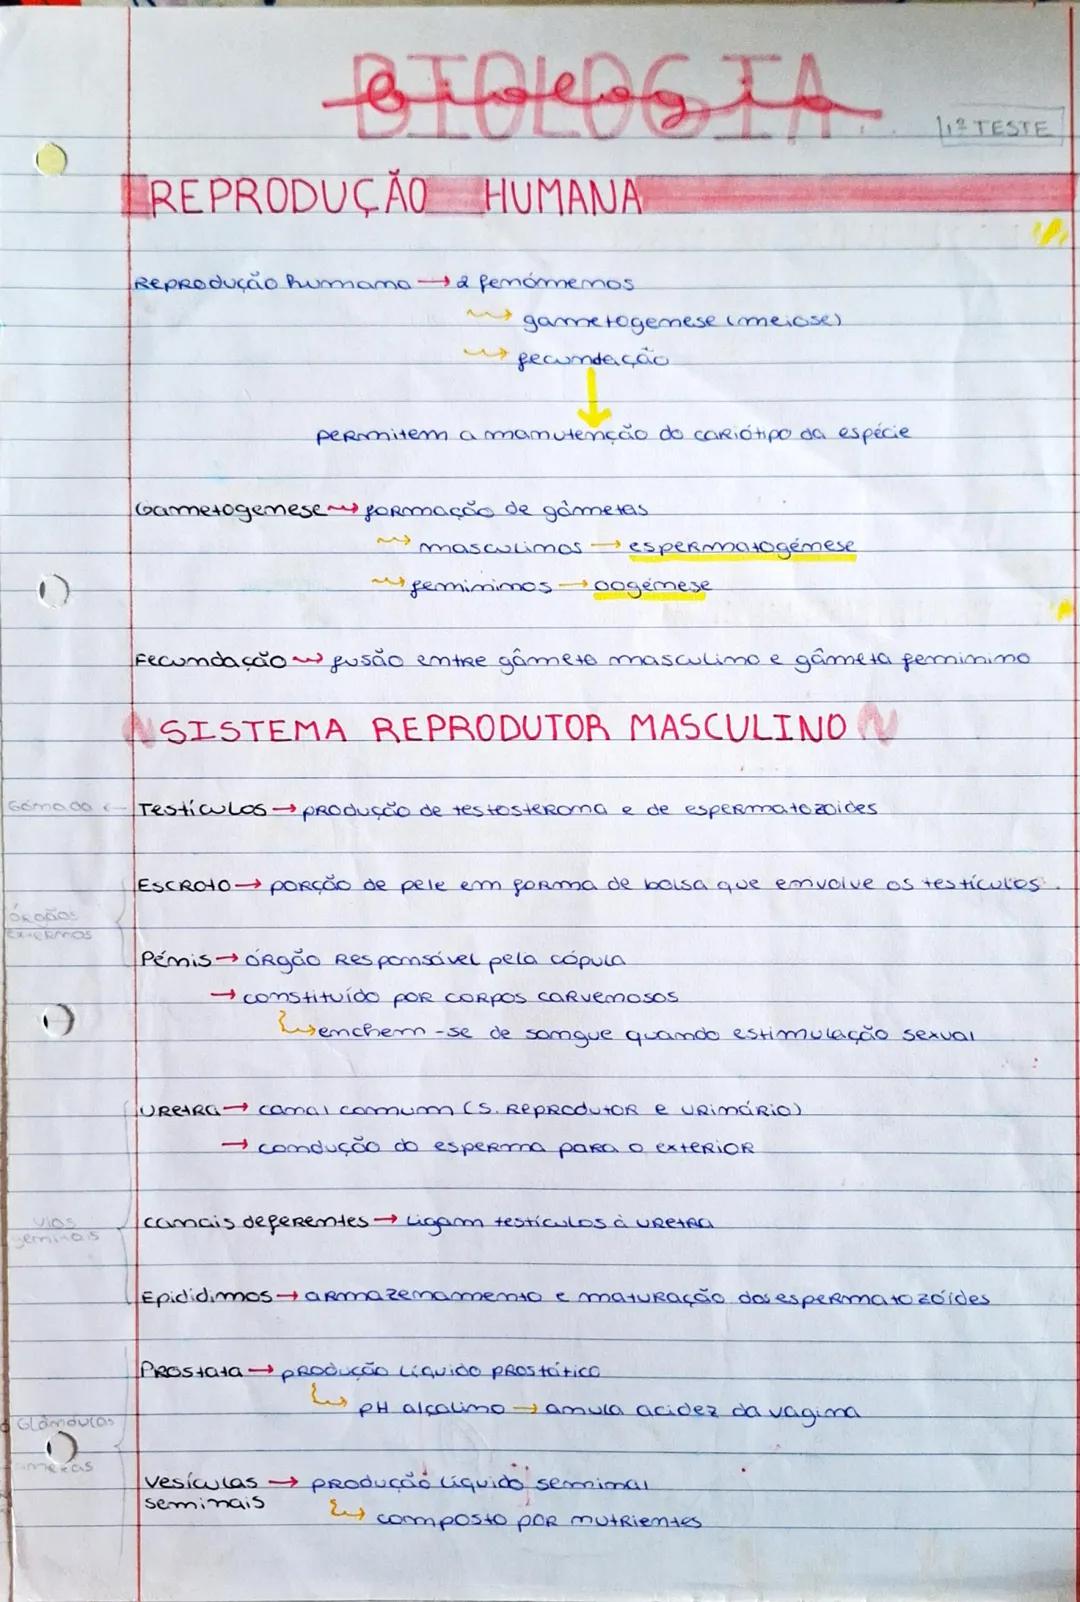 BIOLOGIA
Biologia
1º TESTE
REPRODUÇÃO HUMANA
Reprodução humana → 2 fenómenos
gametogenese (meiose)
fecundação
permitem a manutenção do cariótipo da espécie
Gametogenese formação de gâmetas
masculinos → espermatogénese
femininos → oogénese
Fecundação fusão entre gâmeta masculino e gâmeta feminino
SISTEMA REPRODUTOR MASCULINO
Gónada ← Testículos → produção de testosterona e de espermatozoides
Escroto → porção de pele em forma de bolsa que envolve os testículos.
órgãos
externos
Pénis → órgão responsável pela cópula
→ constituído por corpos carvenosos
enchem-se de sangue quando estimulação sexual
Uretra → canal comum (S. Reprodutor e urinário)
→ condução do esperma para o exterior
vias
geminais
canais deferentes → ligam testículos à uretra
Epididimos → armazenamento e maturação dos espermatozóides
Prostata → produção líquido prostático
pH alcalino → anula acidez da vagina
Glândulas
anexas
vesículas → produção líquido seminal
seminais
composto por nutrientes